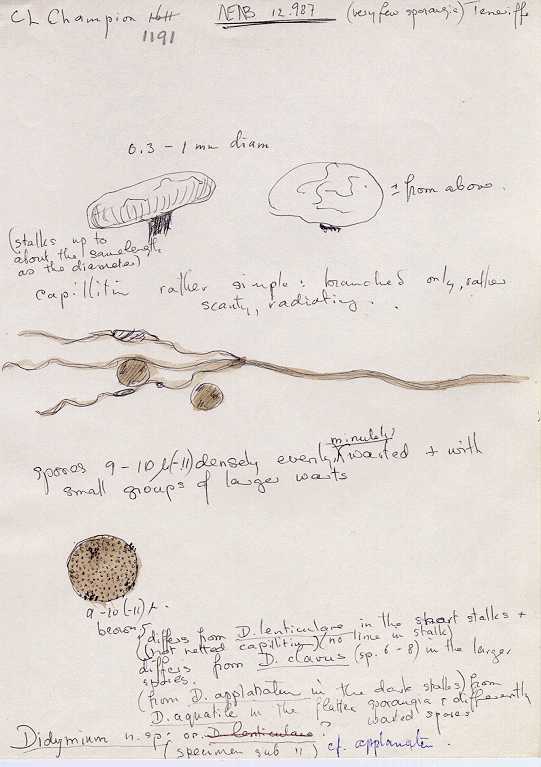 CL Champion 1191 12.987 (very few sporangia) Teneriffe
0.3 - 1 mm diam
± from above.
(stalks up to
about the same length
as the diameter)
Capillitium rather simple: branched only, rather
scanty, radiating.
minutely
spores 9-10 (-11) densely evenly warted + with
small groups of larger warts
9-10 (-11)
brown
(differs from D. lenticulare in the short stalks +
(not netted capillitium) (no lime in stalk)
differs from D. clavus (sp. 6-8) in the larger
spores.
(from D. applanatum in the dark stalks) from
D. aquatile in the flatter sporangia & differently
warted spores
Didymium n.sp. or D. lenticulare?
(specimen sub 11) cf. applanatum.